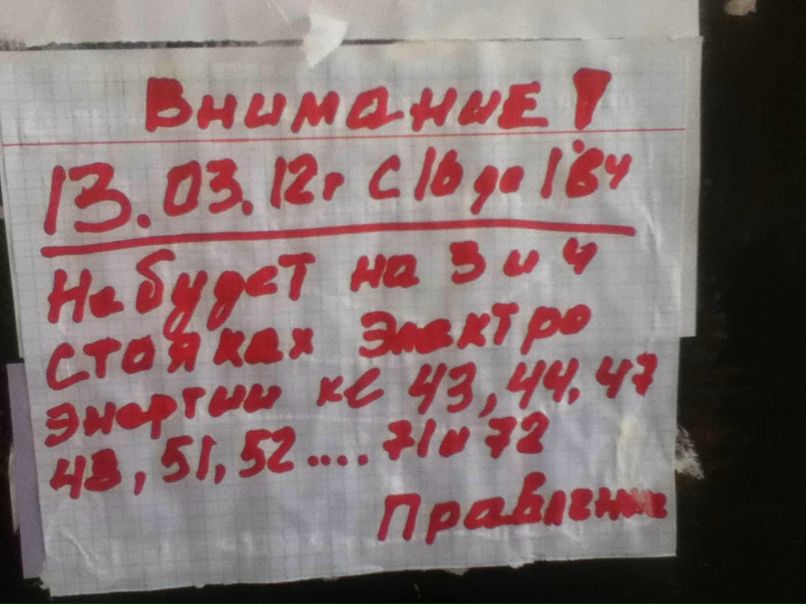 Внимание!
13.03.12г с 16 до 18ч
Не будет на 3 и 4
стояках электро
энергии кв 43, 44, 47
48, 51, 52.... 71 и 72
Правление